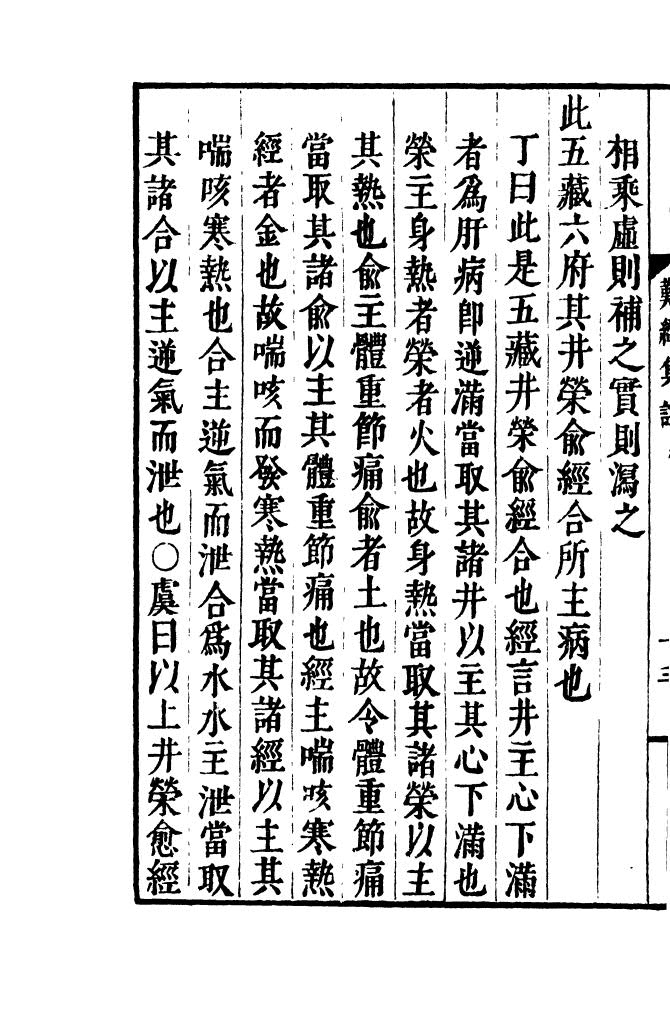 難經集註
十三
相乘虛則補之實則瀉之
此五藏六府其井滎俞經合所主病也
丁曰此是五藏井滎俞經合也經言井主心下滿
者爲肝病卽逆滿當取其諸井以主其心下滿也
滎主身熱者滎者火也故身熱當取其諸滎以主
其熱也俞主體重節痛俞者土也故令體重節痛
當取其諸俞以主其體重節痛也經主喘咳寒熱
經者金也故喘咳而發寒熱當取其諸經以主其
喘咳寒熱也合主逆氣而泄合爲水水主泄當取
其諸合以主逆氣而泄也○虞曰以上井滎愈經